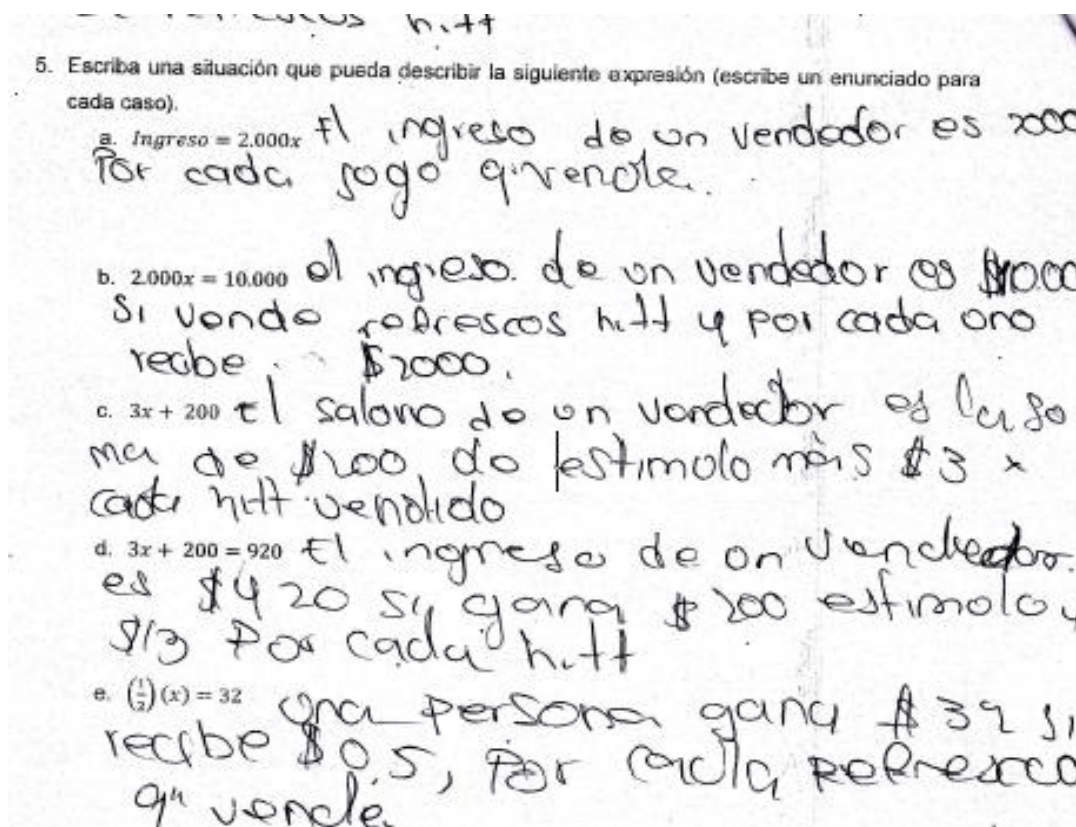 hitt
5. Escriba una situación que pueda describir la siguiente expresión (escribe un enunciado para
cada caso).
a. Ingreso = 2.000x El ingreso de un vendedor es 2000
Por cada jogo q vende.
b. 2.000x = 10.000 el ingreso de un vendedor es
Si vende refrescos hitt y por cada uno
recibe $2000.
c. 3x + 200 El salario de un vendedor es la so
ma de $200 de estimolo más $3 x
cada hitt vendido
d. 3x + 200 = 920 El ingreso de un vendedor
es $920 si gana $200 estimolo y
$3 Por cada hitt
e. (1/2)(x) = 32 Una persona gana $32 si
recibe $0.5, Por cada Refresco
q' vende.